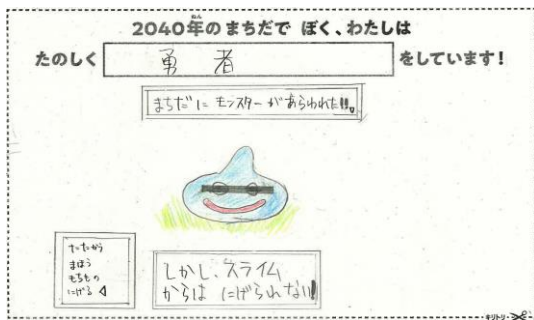 2040年のまちだで ぼく、わたしは
たのしく 勇者 をしています!
まちだにモンスターがあらわれた!!。
たたかう
まほう
もちもの
にげる ◁
しかし、スライム
からは にげられない!
キリトリ